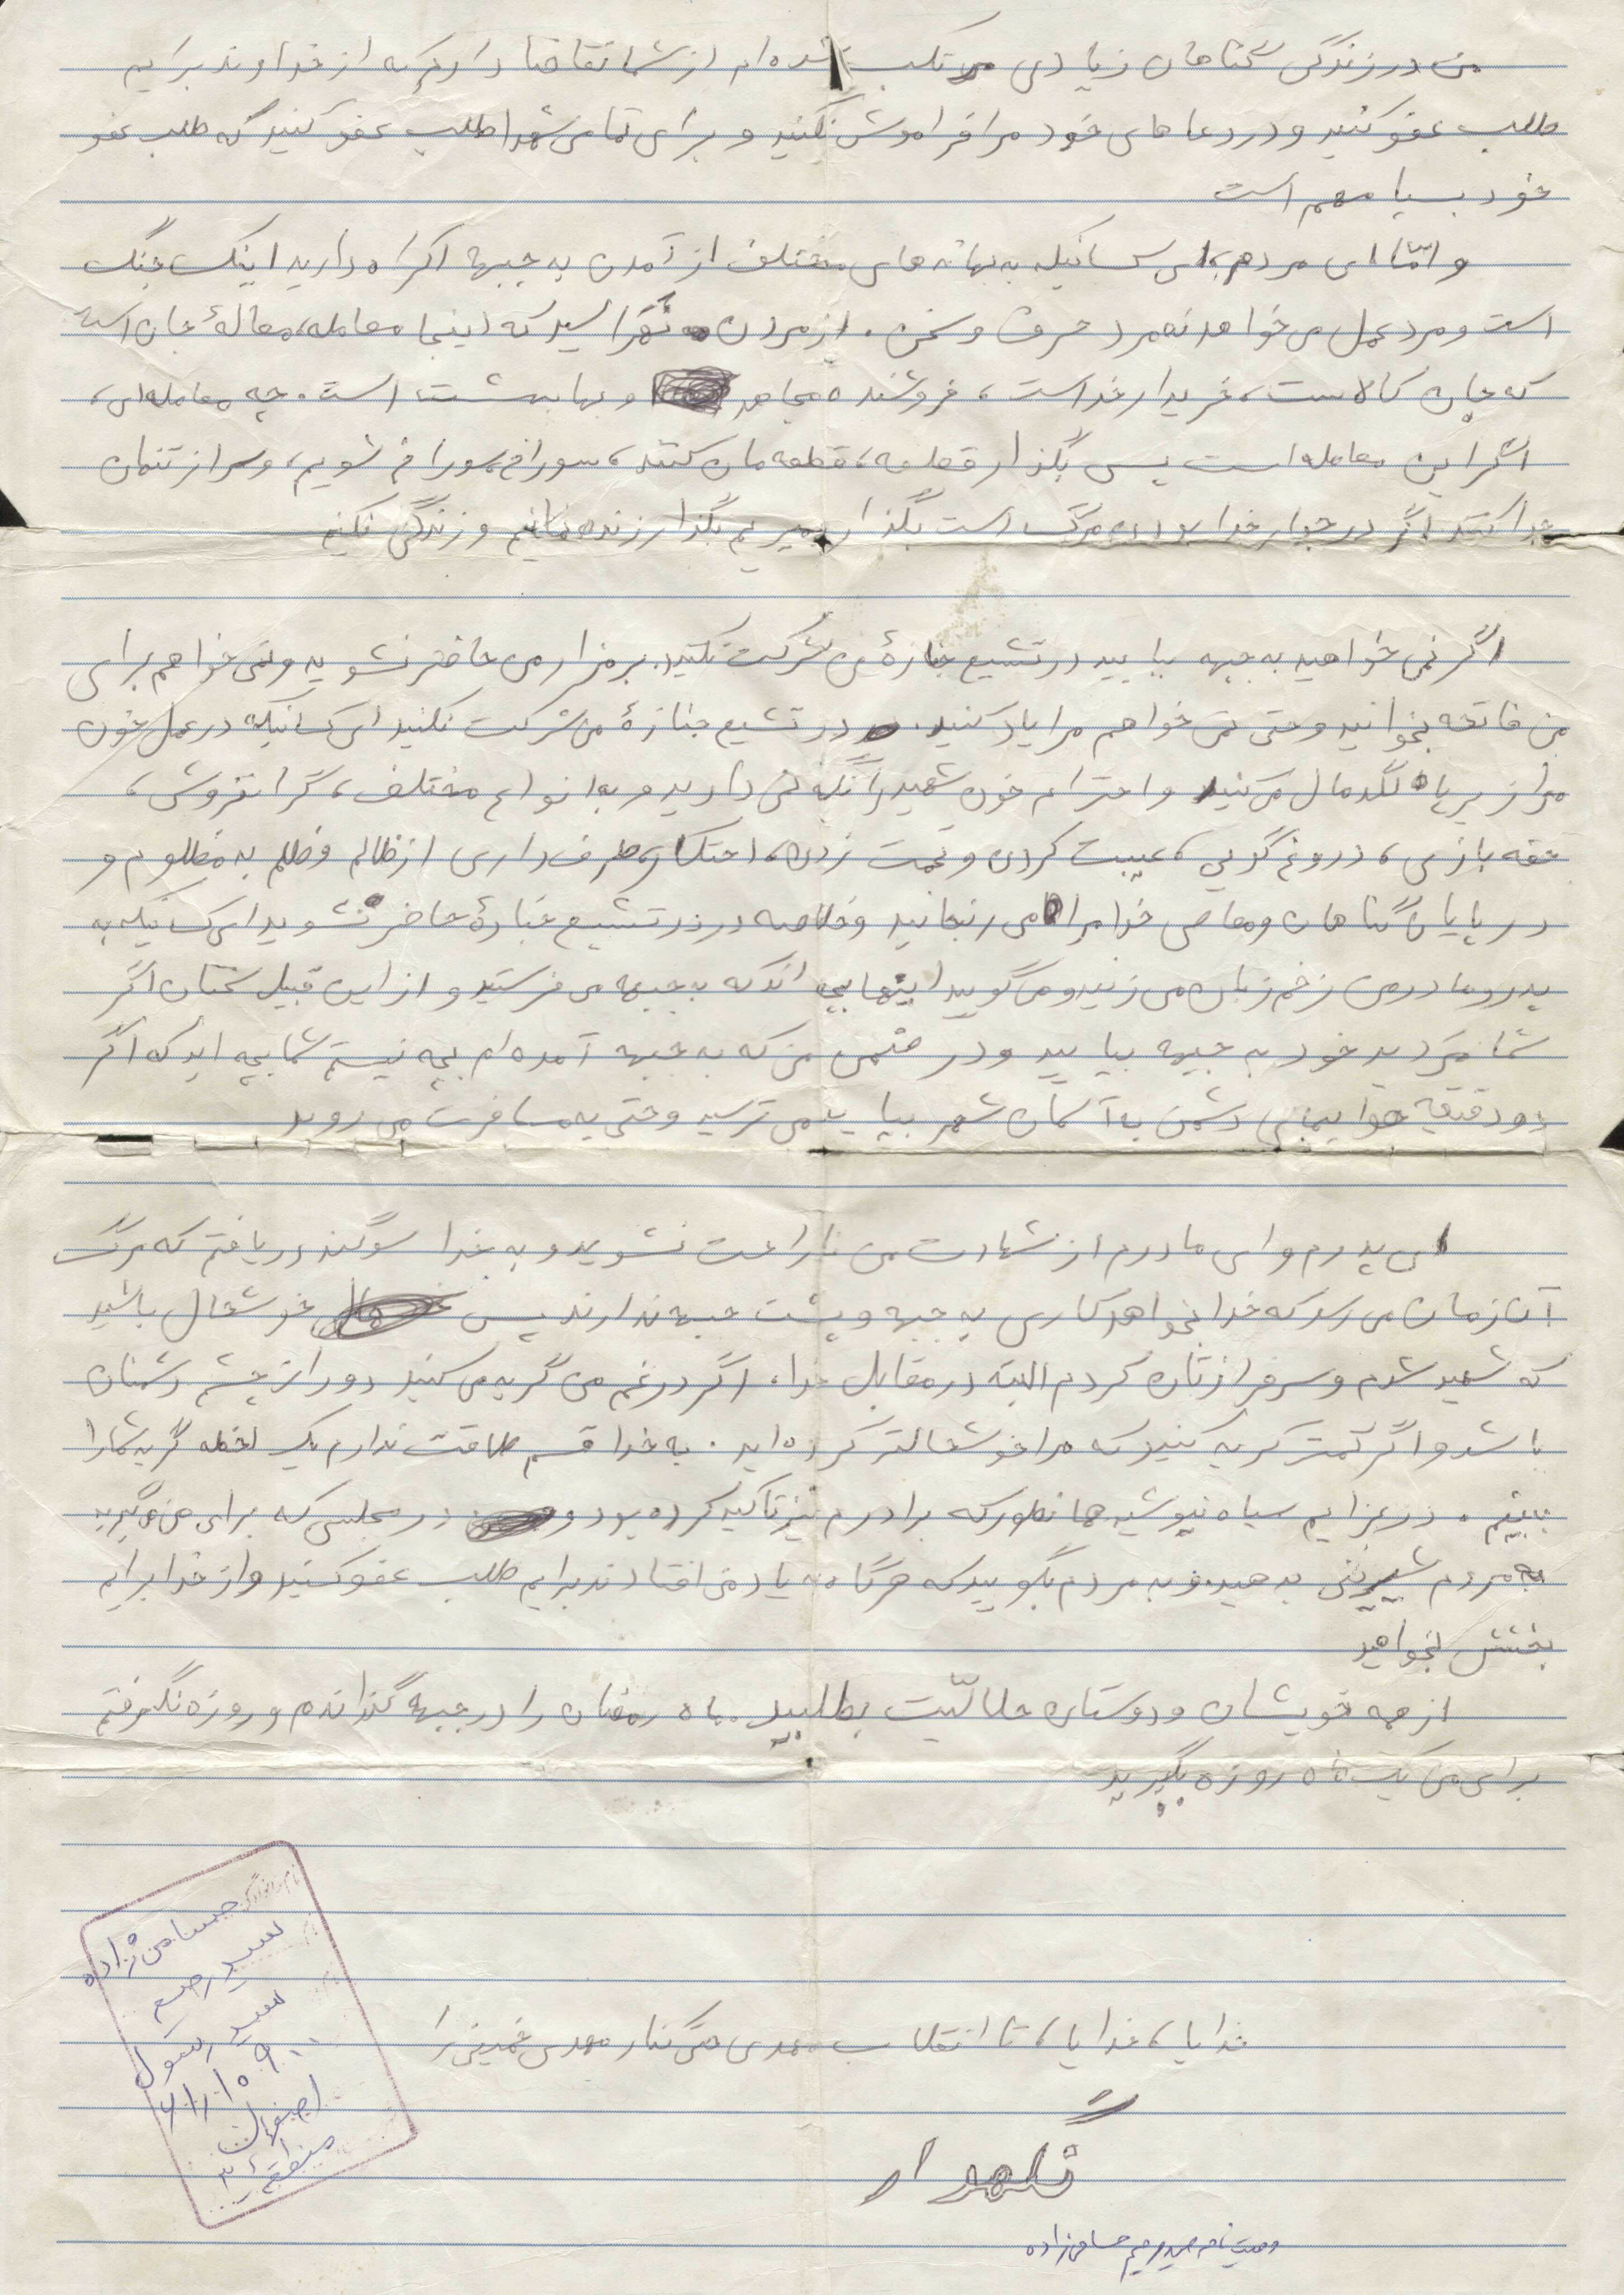 من در زندگی گناهان زیادی مرتکب شده‌ام از شما تقاضا دارم که از خداوند برایم
طلب عفو کنید و در دعاهای خود مرا فراموش نکنید و برای تمامی شهدا طلب عفو کنید که طلب عفو
خود بسیا مهم است
و امّا ای مردم، ای کسانیکه به بهانه‌های مختلف از آمدن به جبهه اکراه دارید اینک جنگ
است و مرد عمل می‌خواهد نه مرد حرف و سخن. از مردن نهراسید که اینجا معامله، معاملهٔ جان است
که جان کالاست، خریدار خداست، فروشنده مجاهد و بها بهشت است. چه معامله‌ای،
اگر این معامله است پس بگذار قطعه، قطعه‌مان کنند، سوراخ، سوراخ شویم، و سر از تنمان
جدا کنند اگر در جوار خدا بودن مرگ است بگذار بمیریم بگذار زنده نمانیم و زندگی نکنیم
اگر نمی‌خواهید به جبهه بیایید در تشییع جنازهٔ من شرکت نکنید. بر مزار من حاضر نشوید و نمی‌خواهم برای
من فاتحه بخوانید و حتی نمی‌خواهم مرا یاد کنید. در تشیع جنازهٔ من شرکت نکنید ای کسانیکه در عمل خون
مرا زیر پا لگدمال می‌کنید و احترام خون شهید را نگه نمی‌دارید و به انواع مختلف، گرانفروشی،
حقه بازی، دروغ گویی، غیبت کردن و تهمت زدن، احتکار، طرف داری از ظالم و ظلم به مظلوم و
در پایان گناهان و معاصی خدا را می‌رنجانید و خلاصه در تشیع جنازهٔ حاضر نشوید ای کسانیکه به
پدر و مادر من زخم زبان می‌زنید و می‌گویید اینها بچه اند که به جبهه می‌فرستید و از این قبیل سخنان اگر
شما مردید خود به جبهه بیایید و در ضمن من که به جبهه آمده‌ام بچه نیستم شما بچه اید که اگر
دو دقیقه هواپیمای دشمن به آسمان شهر بیاید می‌ترسید و حتی به مسافرت می‌روید
ای پدرم و ای مادرم از شهادت من ناراحت نشوید و به خدا سوگند دریافتم که مرگ
آن زمان می‌رسد که خدا بخواهد کاری به جبهه و پشت جبهه ندارند پس خوشحال باشید
که شهید شدم و سرفرازتان کردم البته در مقابل خدا. اگر در غم من گریه می‌کنید دور از چشم دشمنان
باشد و اگر کمتر گریه کنید که مرا خوشحالتر کرده‌اید. به خدا قسم طاقت ندارم یک لحظه گریه شما را
ببینم. در عزایم سیاه نپوشید همانطور که برادرم نیز تاکید کرده بود و در مجلسی که برای من می‌گیرید
به مردم شیرینی بدهید و به مردم بگویید که هر گاه به یاد من افتادند برایم طلب عفو کنید و از خدا برایم
بخشش بخواهید
از همه خویشان و دوستان حلالیّت بطلبید. ماه رمضان را در جبهه گذراندم و روزه نگرفتم
برای من یک ماه روزه بگیرید
خدایا، خدایا، تا انقلاب مهدی حتی کنار مهدی خمینی را
نگهدار
وصیت نامه سید رحیم حسامی زاده
نام و نام خانوادگی حسامی زاده
سید رحیم
سید رسول
اصفهان
منطقه ۳